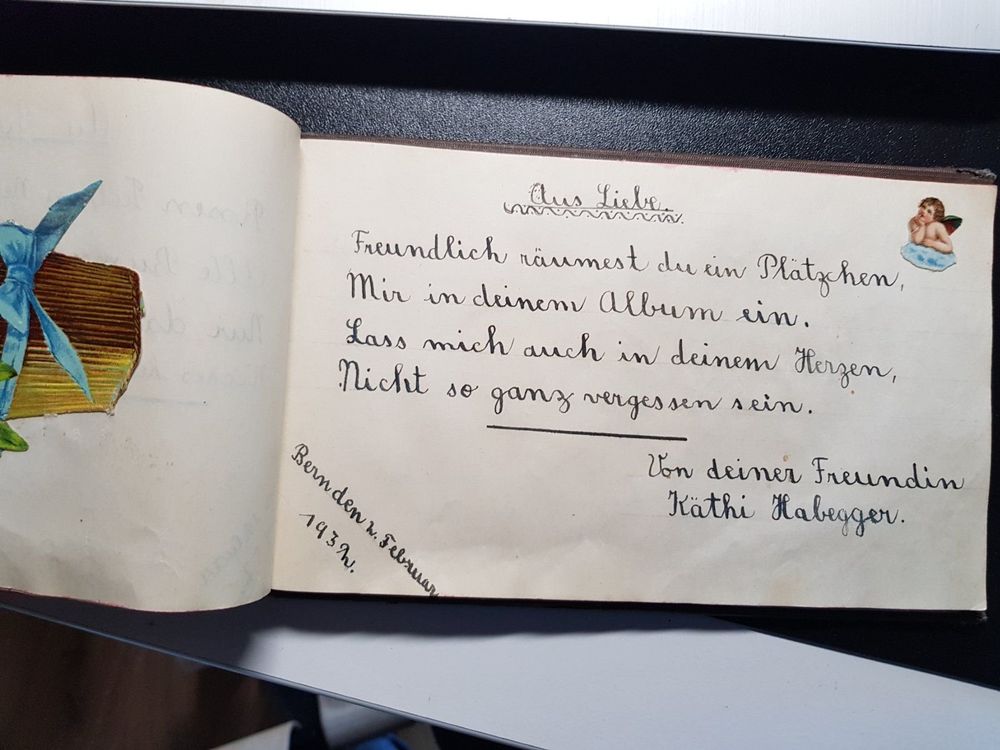 Aus Liebe.
Freundlich räumest du ein Plätzchen,
Mir in deinem Album ein.
Lass mich auch in deinem Herzen,
Nicht so ganz vergessen sein.
Von deiner Freundin
Käthi Habegger.
Bern den 2. Februar
1932.